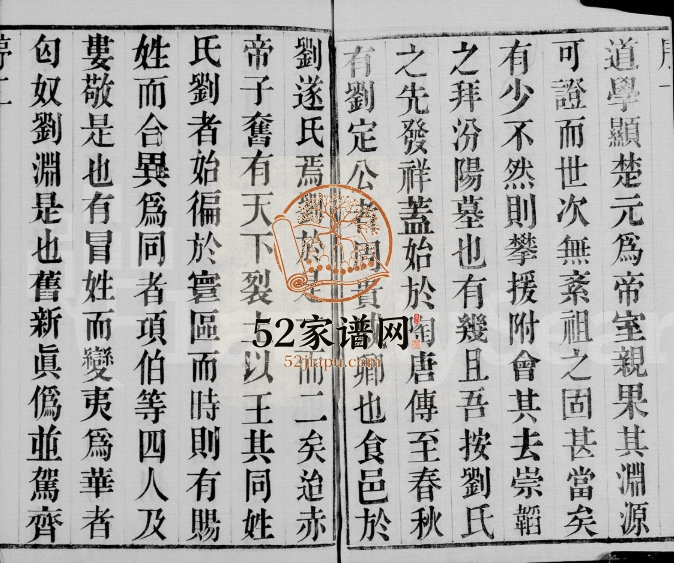 道學顯楚元爲帝室親果其淵源
可證而世次無紊祖之固甚當矣
有少不然則攀援附會其去崇韜
之拜汾陽墓也有幾且吾按劉氏
之先發祥蓋始於陶唐傳至春秋
有劉定公者周賓卿也食邑於
劉遂氏焉劉於是而二矣迨赤
帝子奮有天下裂土以王其同姓
氏劉者始徧於寰區而時則有賜
姓而合異爲同者項伯等四人及
婁敬是也有冒姓而變夷爲華者
匈奴劉淵是也舊新眞僞並駕齊
52家谱网
52jiapu.com